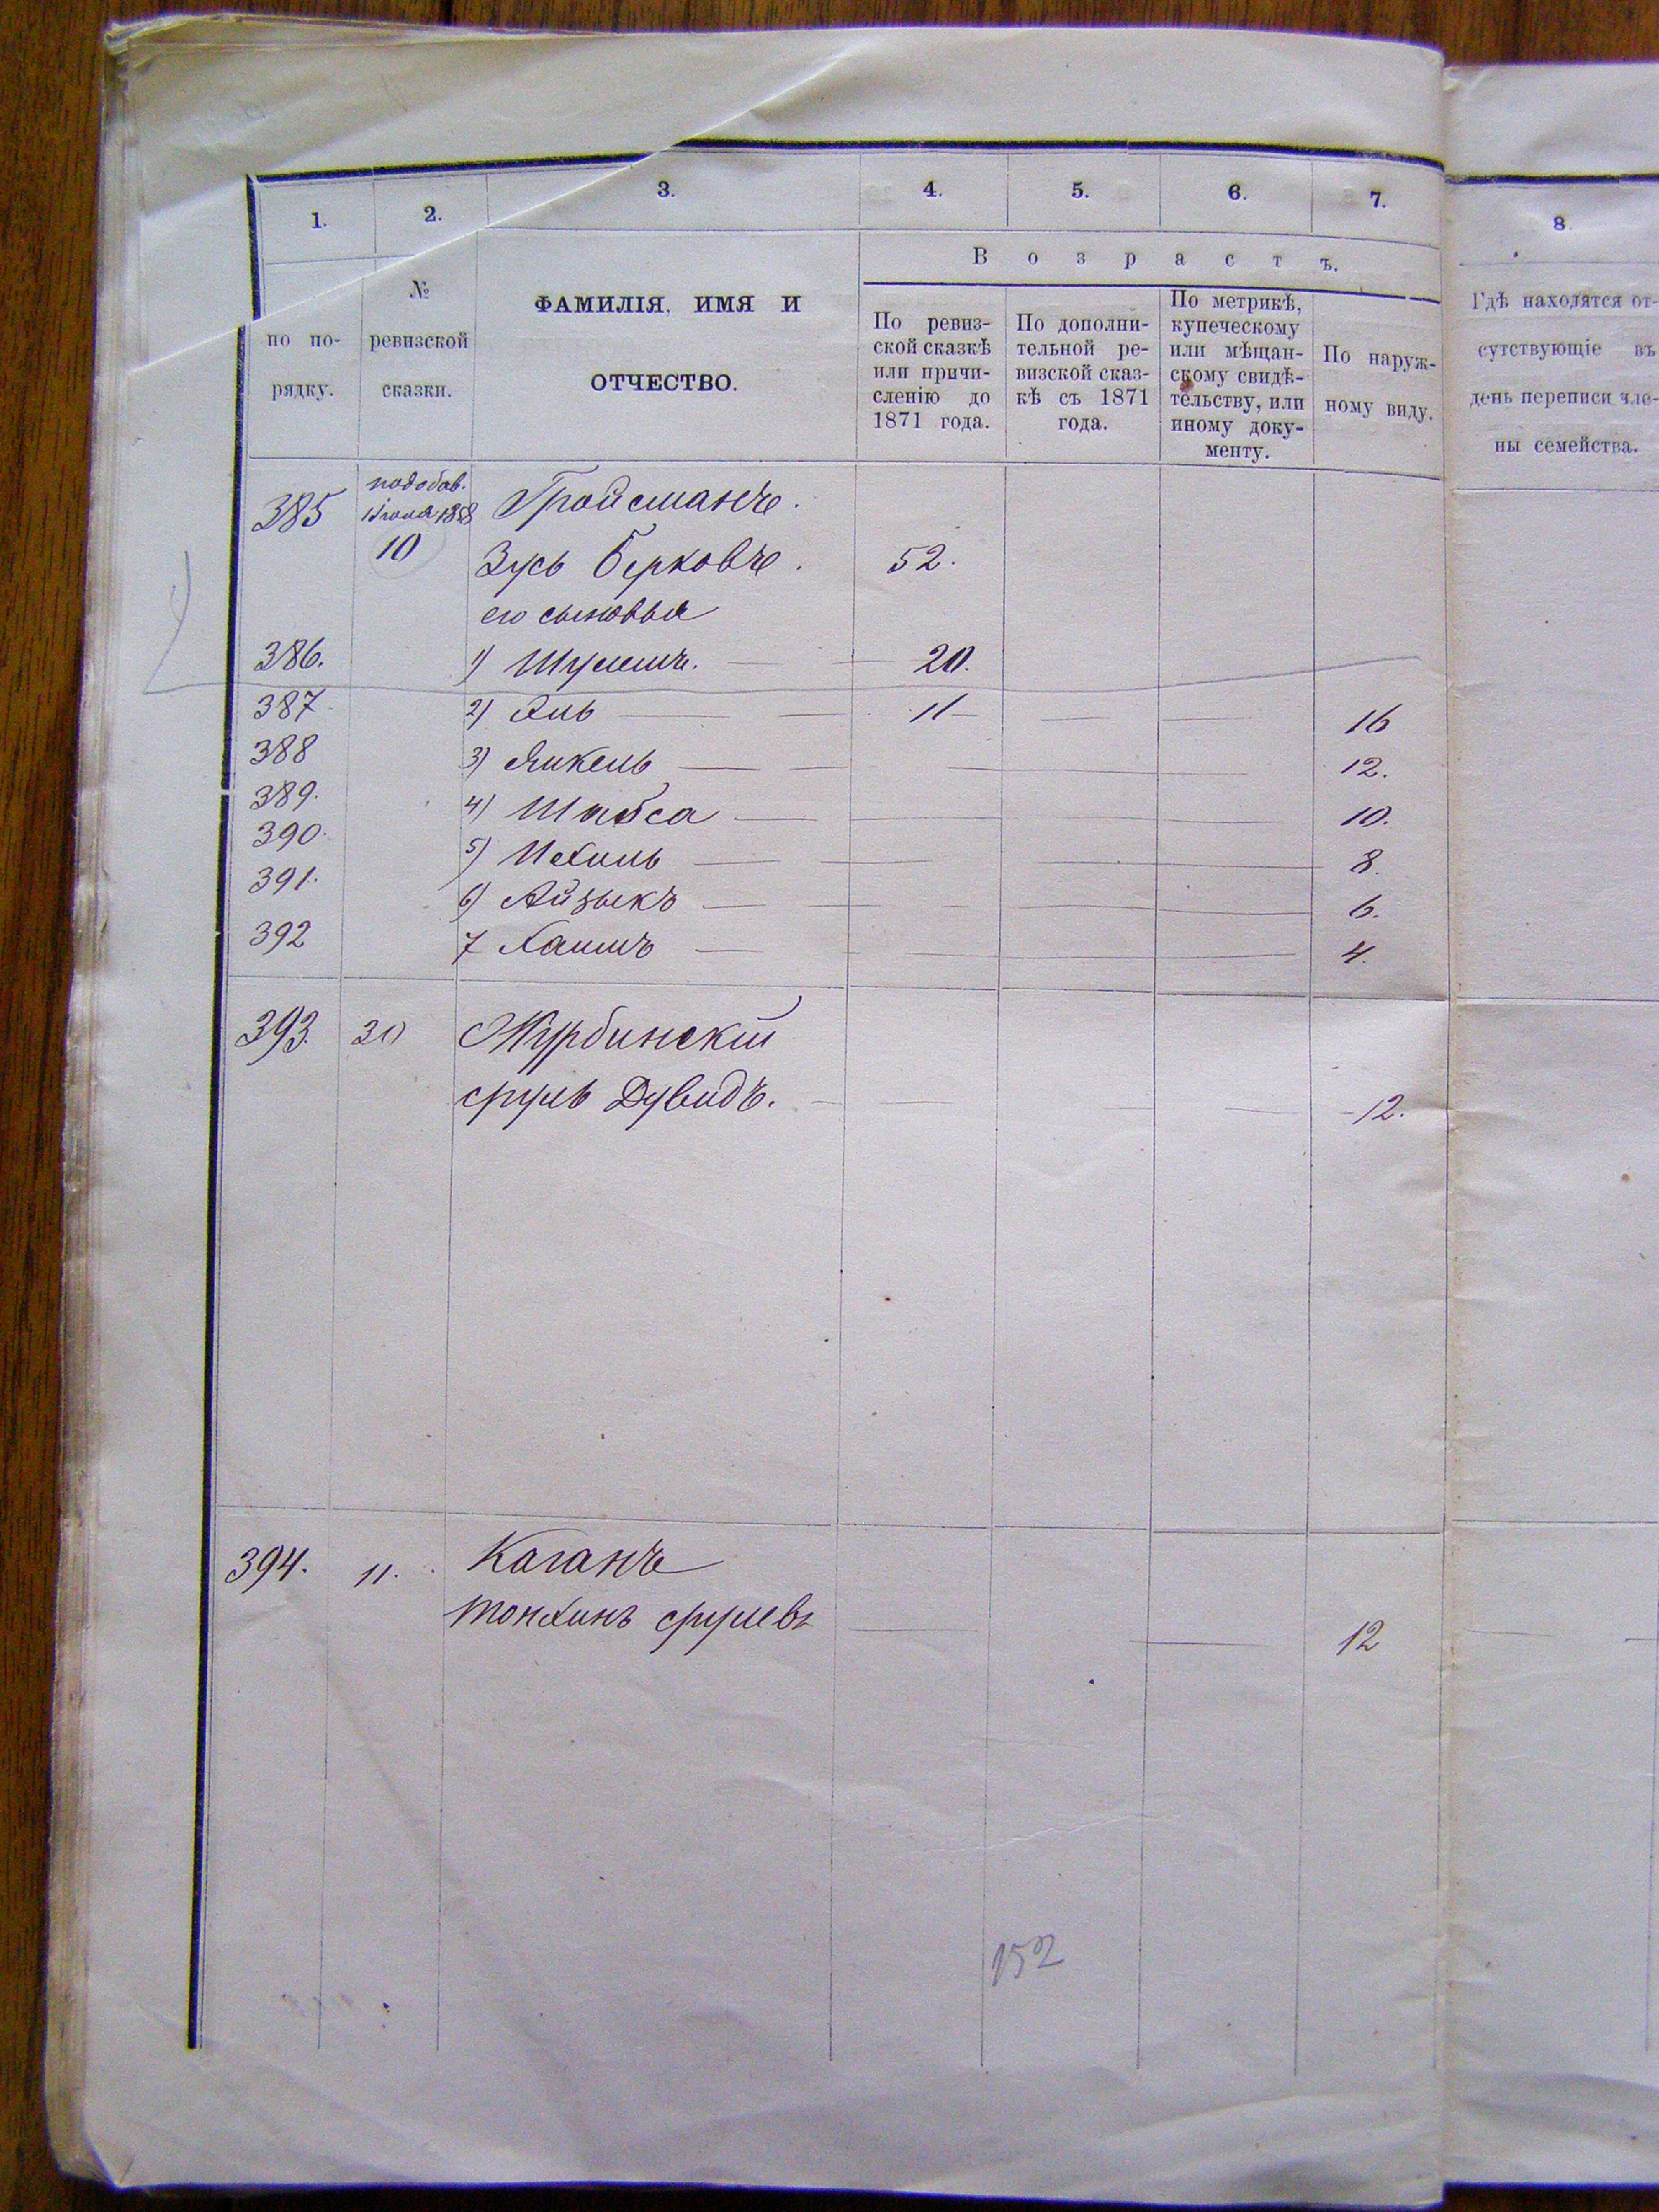 1. 2. 3. 4. 5. 6. 7. 8.
В о з р а с т ъ.
по по-
рядку.
№
ревизской
сказки.
ФАМИЛІЯ, ИМЯ И
ОТЧЕСТВО.
По ревиз-
ской сказкѣ
или причи-
сленію до
1871 года.
По дополни-
тельной ре-
визской сказ-
кѣ съ 1871
года.
По метрикѣ,
купеческому
или мѣщан-
скому свидѣ-
тельству, или
иному доку-
менту.
По наруж-
ному виду.
Гдѣ находятся от-
сутствующіе въ
день переписи чле-
ны семейства.
385 Гройсманъ.
10 Зусь Берковъ. 52.
его сыновья
386. 1) Шулимъ. 20.
387 2) 11 16
388 3) Янкель 12.
389. 4) Шабса 10.
390. 5) Ихиль 8.
391. 6) Айзыкъ 6.
392 7 Хаимъ 4.
393. Журбинскій
сруль Дувидъ. 12.
394. 11. Каганъ
срулевъ 12
152